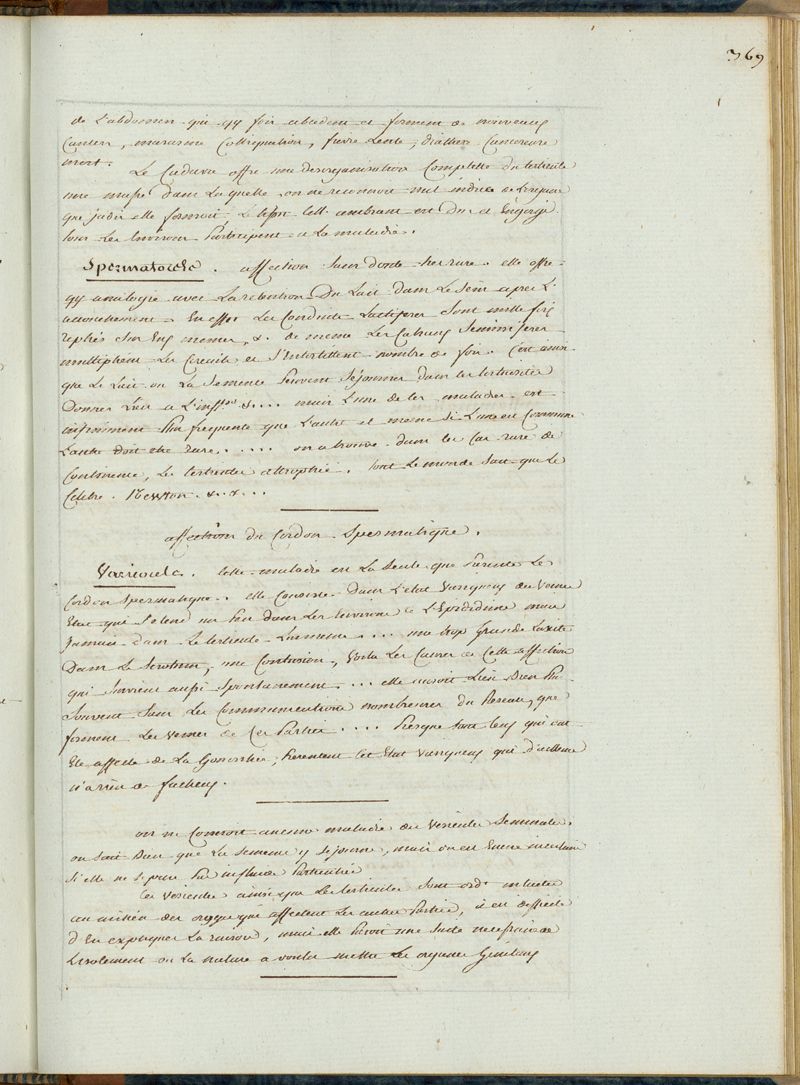 369
de L'abdomen qui s'y font abcedent et forment de nouveaux
Cancers, marasme Colliquation, fievre Lente, diathese Cancereuse
mort.
Le Cadavre offre une desorganisation Complette du testicule
une masse dans La quelle on ne reconnoit nul indice de L'organe
que jadis elle formoit, Le tissu Cell. ambiant est Dur et Engorgé
tous Les Environs Participent a La maladie.
Spermatocele. affection sans doute tres rare. elle offre
qq analogie avec La retention Du Lait dans Le Sein apres L'
accouchement. En effet Les Conduits Lactiferes Sont mille fois
repliés Sur Eux memes, &. de meme Les Canaux Seminiferes
multiplient Les Circuits et S'Entortillent nombre de fois. C'est ainsi
que Le Lait ou La Semence Peuvent Sejourner dans les testicules
Donner Lieu a L'inflon &.... mais L'une de ces maladies est
infiniment Plus frequente que L'autre et meme si L'une est Commune
L'autre doit etre rare..... on a trouvé dans les Cas rare de
Continence, Les testicules attrophiés. tout Le monde Sait que Le
Celebre Newton &. &...
affection du Cordon Spermatique.
Varicocele. Cette maladie est La Seule que Presente Le
Cordon Spermatique. elle Consiste Dans L'etat Variqueux des Veines
Etat qui S'etend un Peu dans Les Environs de L'Epididime mais
Jamais dans Le testicule Lui meme.... une trop Grande Laxité
Dans Le Scrotum, une Contusion, Voila Les Causes de Cette affection
qui Survient aussi Spontanement... elle auroit Lieu Bien Plus
Souvent Sans Les Communications nombreuses du Reseau, que
forment Les Veines de Ces Parties.... Presque tous Ceux qui ont
Ete affectés de La Gonorrhée, Presentent Cet Etat Variqueux qui d'ailleurs
n'a rien de facheux.
on ne Connoit aucune maladie des Vesicules Seminales.
on Sait Bien que La Semence y Sejourne, mais on est Encore incertain
Si elle ne s'y pas Par influence Particuliere
Ces Vesicules ainsi que Les testicules Sont ordt intactes
au milieu des org que affectent Les autres Parties, il est difficile
d'En expliquer La raison, mais elle Paroit une Suite necessaire de
L'isolement ou La nature a voulu mettre Les organes Genitaux